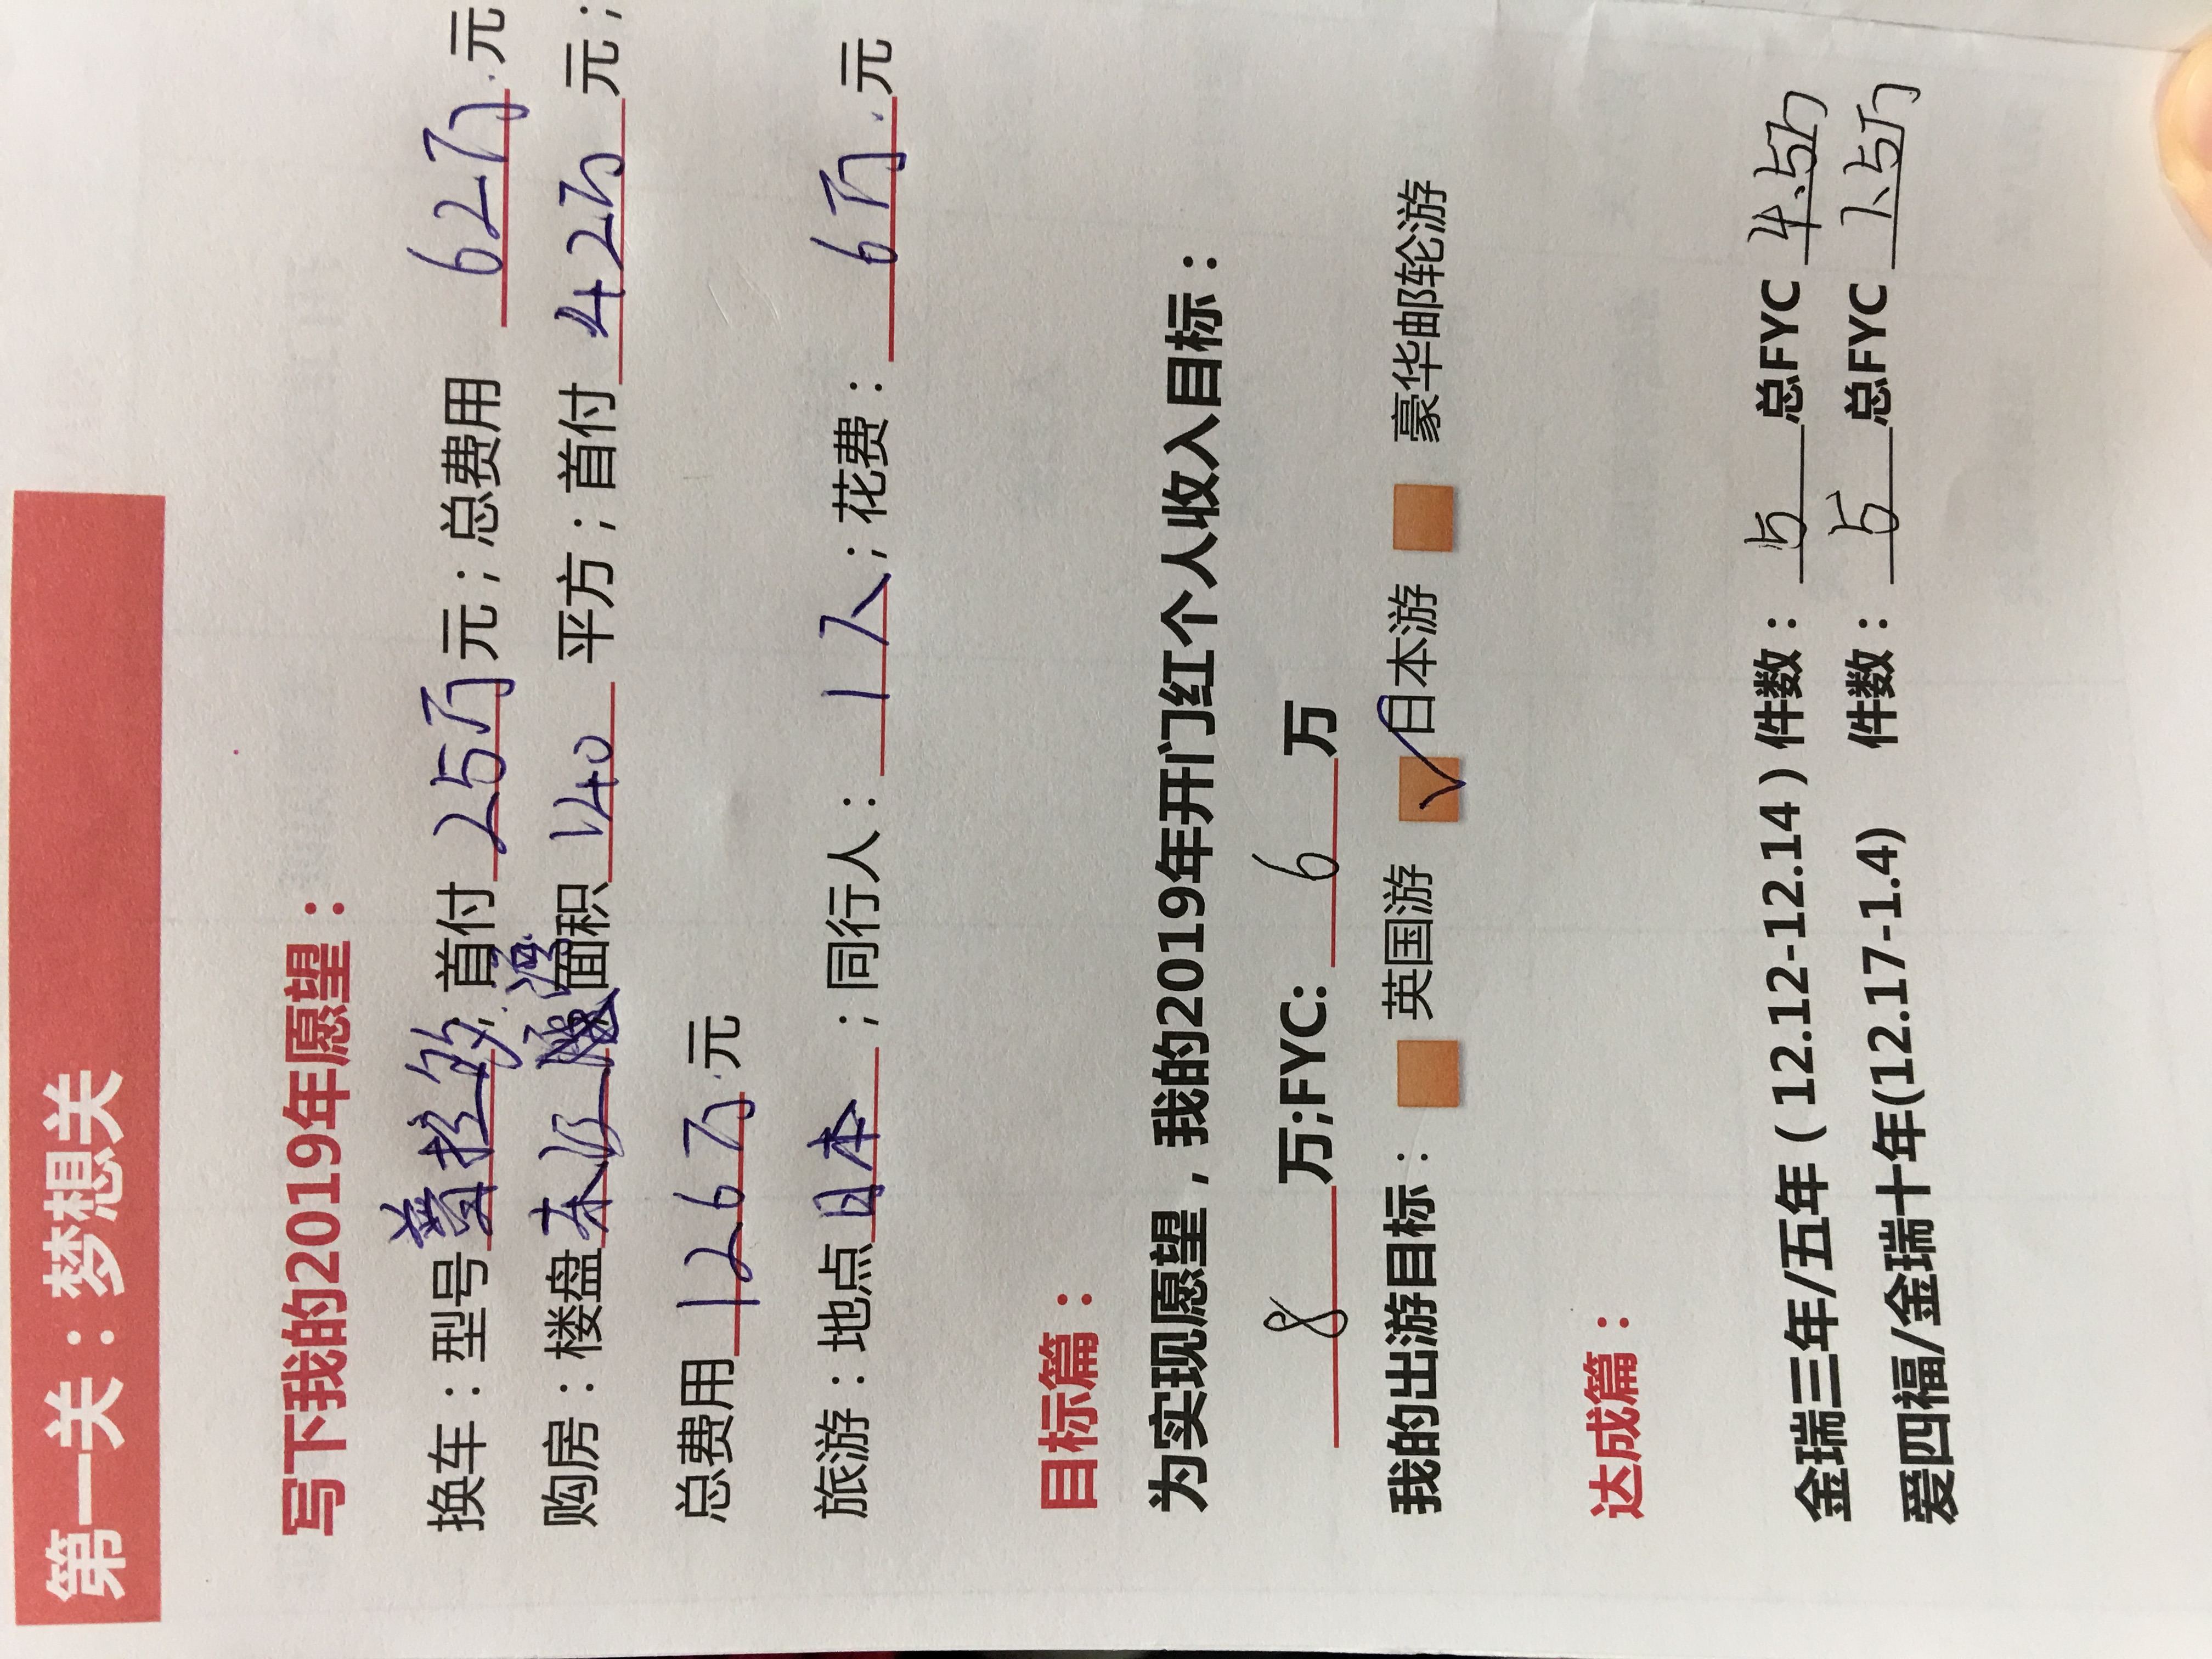 第一关：梦想关
写下我的2019年愿望：
换车：型号普拉多；首付25万元；总费用62万元
购房：楼盘 面积140平方；首付42万元；
总费用126万元
旅游：地点日本；同行人：1人；花费：6万元
目标篇：
为实现愿望，我的2019年开门红个人收入目标：
8万;FYC:6万
我的出游目标：英国游 ✓日本游 豪华邮轮游
达成篇：
金瑞三年/五年（12.12-12.14）件数：5总FYC 4.5万
爱四福/金瑞十年(12.17-1.4) 件数：5总FYC 1.5万